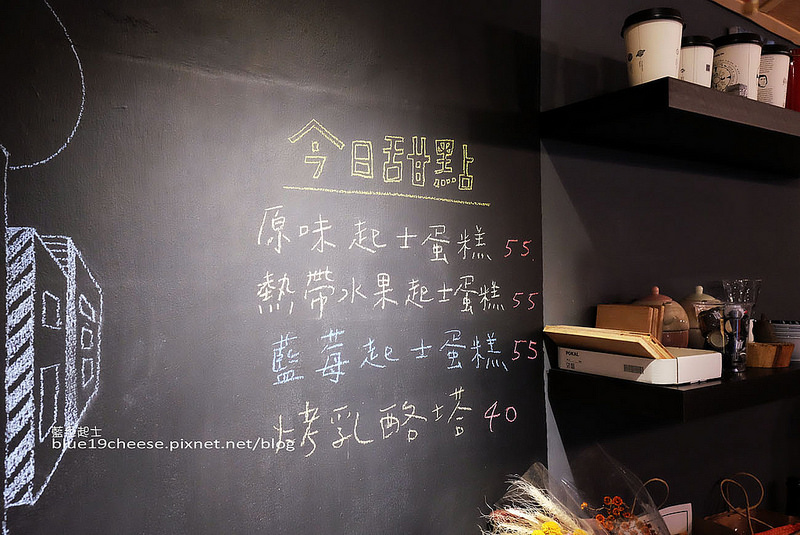 今日甜點
原味起士蛋糕 55.
熱帶水果起士蛋糕 55
藍莓起士蛋糕 55
烤乳酪塔 40
藍色起士
blue19cheese.pixnet.net/blog